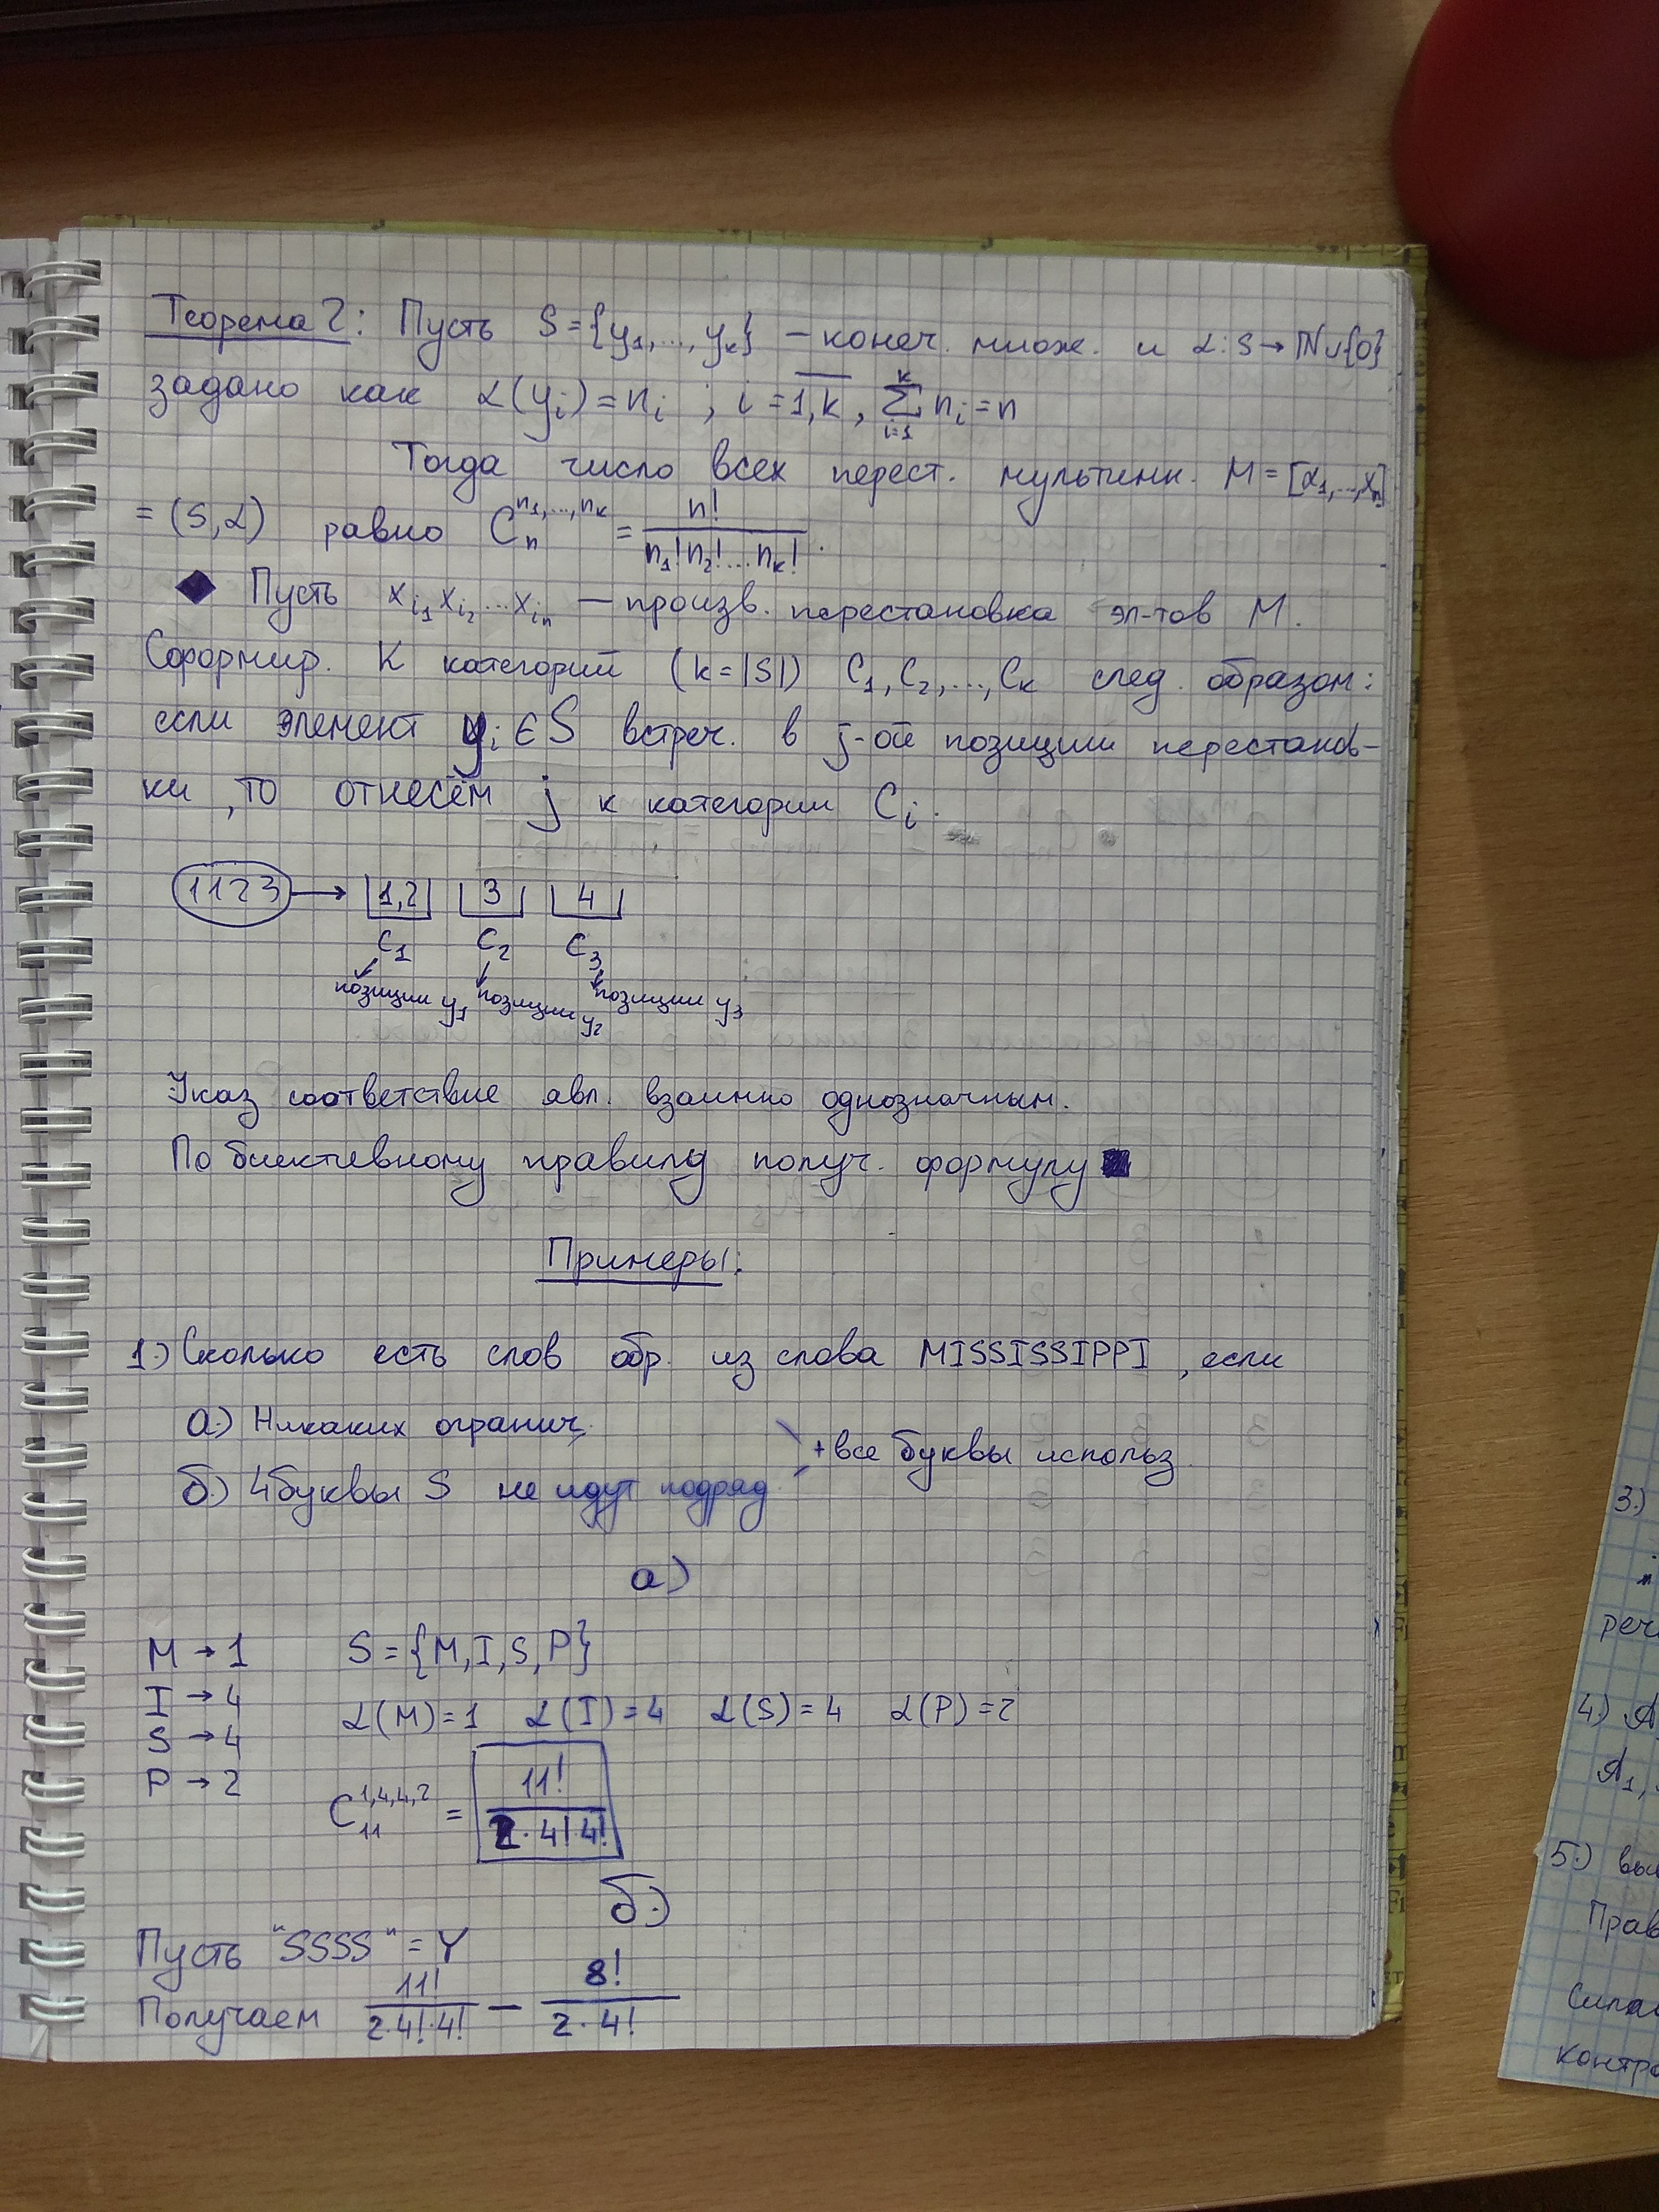 Теорема 2: Пусть S={y₁,...,yₖ} – конеч. множ. и α: S→ℕ∪{0}
задано как α(yᵢ)=nᵢ ; i=1,k̅ , Σᵢ₌₁ᵏ nᵢ=n
Тогда число всех перест. мультимн. M=[x₁,...,xₙ]
=(S,α) равно Cₙ^(n₁,...,nₖ) = n!/(n₁!n₂!...nₖ!).
◆ Пусть x_i₁ x_i₂ ... x_iₙ – произв. перестановка эл-тов M.
Сформир. K категорий (k=|S|) C₁,C₂,...,Cₖ след. образом:
если элемент yᵢ∈S встреч. в j-ой позиции перестанов-
ки, то отнесём j к категории Cᵢ.
1123 → 1,2 3 4
C₁ C₂ C₃
позиции y₁ позиции y₂ позиции y₃
Указ соответствие явл. взаимно однозначным.
По биективному правилу получ. формулу ■
Примеры:
1.) Сколько есть слов обр. из слова MISSISSIPPI, если
а.) Никаких огранич.
+все буквы использ.
б.) 4 буквы S не идут подряд
а)
M → 1 S={M,I,S,P}
I → 4
α(M)=1 α(I)=4 α(S)=4 α(P)=2
S → 4
P → 2
C₁₁^(1,4,4,2) = 11!/(2·4!·4!)
б.)
Пусть "SSSS" = Y
Получаем 11!/(2·4!·4!) – 8!/(2·4!)
3.)
речи
4.) A
A₁,
5.)
Прав
контр